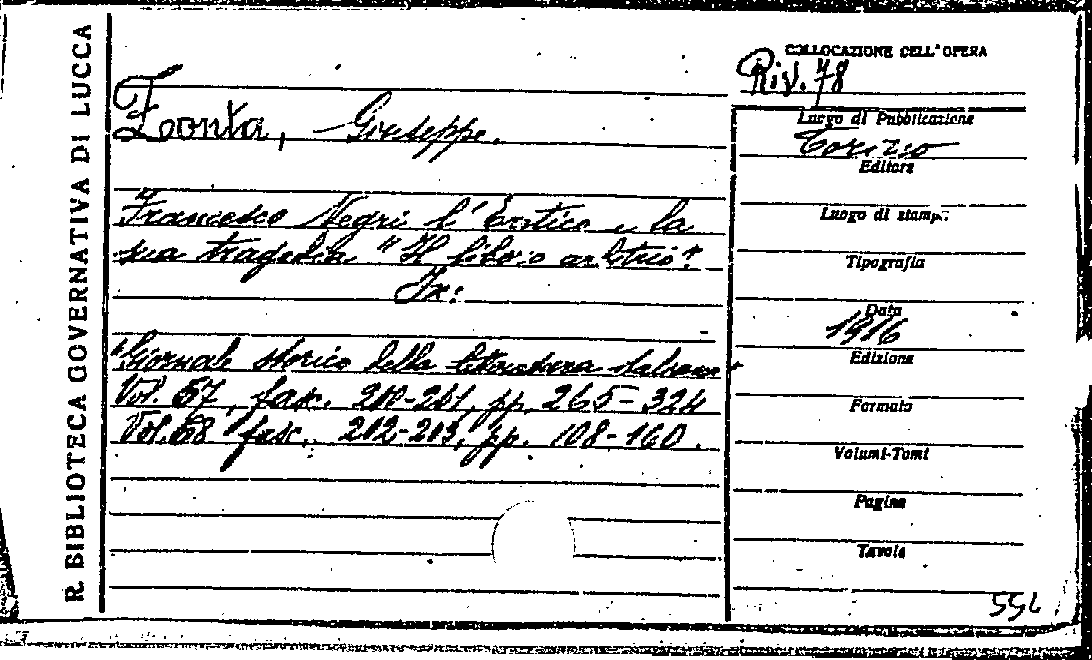 R. BIBLIOTECA GOVERNATIVA DI LUCCA
COLLOCAZIONE DELL'OPERA
Riv. 78
Zonta, Giuseppe.
Francesco Negri l'Eretico e la
sua tragedia "Il libero arbitrio".
In:
"Giornale storico della letteratura italiana"
Vol. 67, fasc. 200-201, pp. 265-324
Vol. 68 fasc. 202-203, pp. 108-160.
Luogo di Pubblicazione
Torino
Editore
Luogo di stamp.:
Tipografia
Data
1916
Edizione
Formato
Volumi-Tomi
Pagine
Tavole